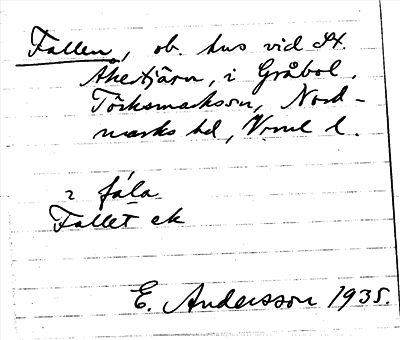 Fallen, ob. hus vid St.
Åketjärn, i Gråbol,
Töcksmarks sn, Nord-
marks hd, Vrml l.
2 fála
Fallet ek
E. Andersson 1935.